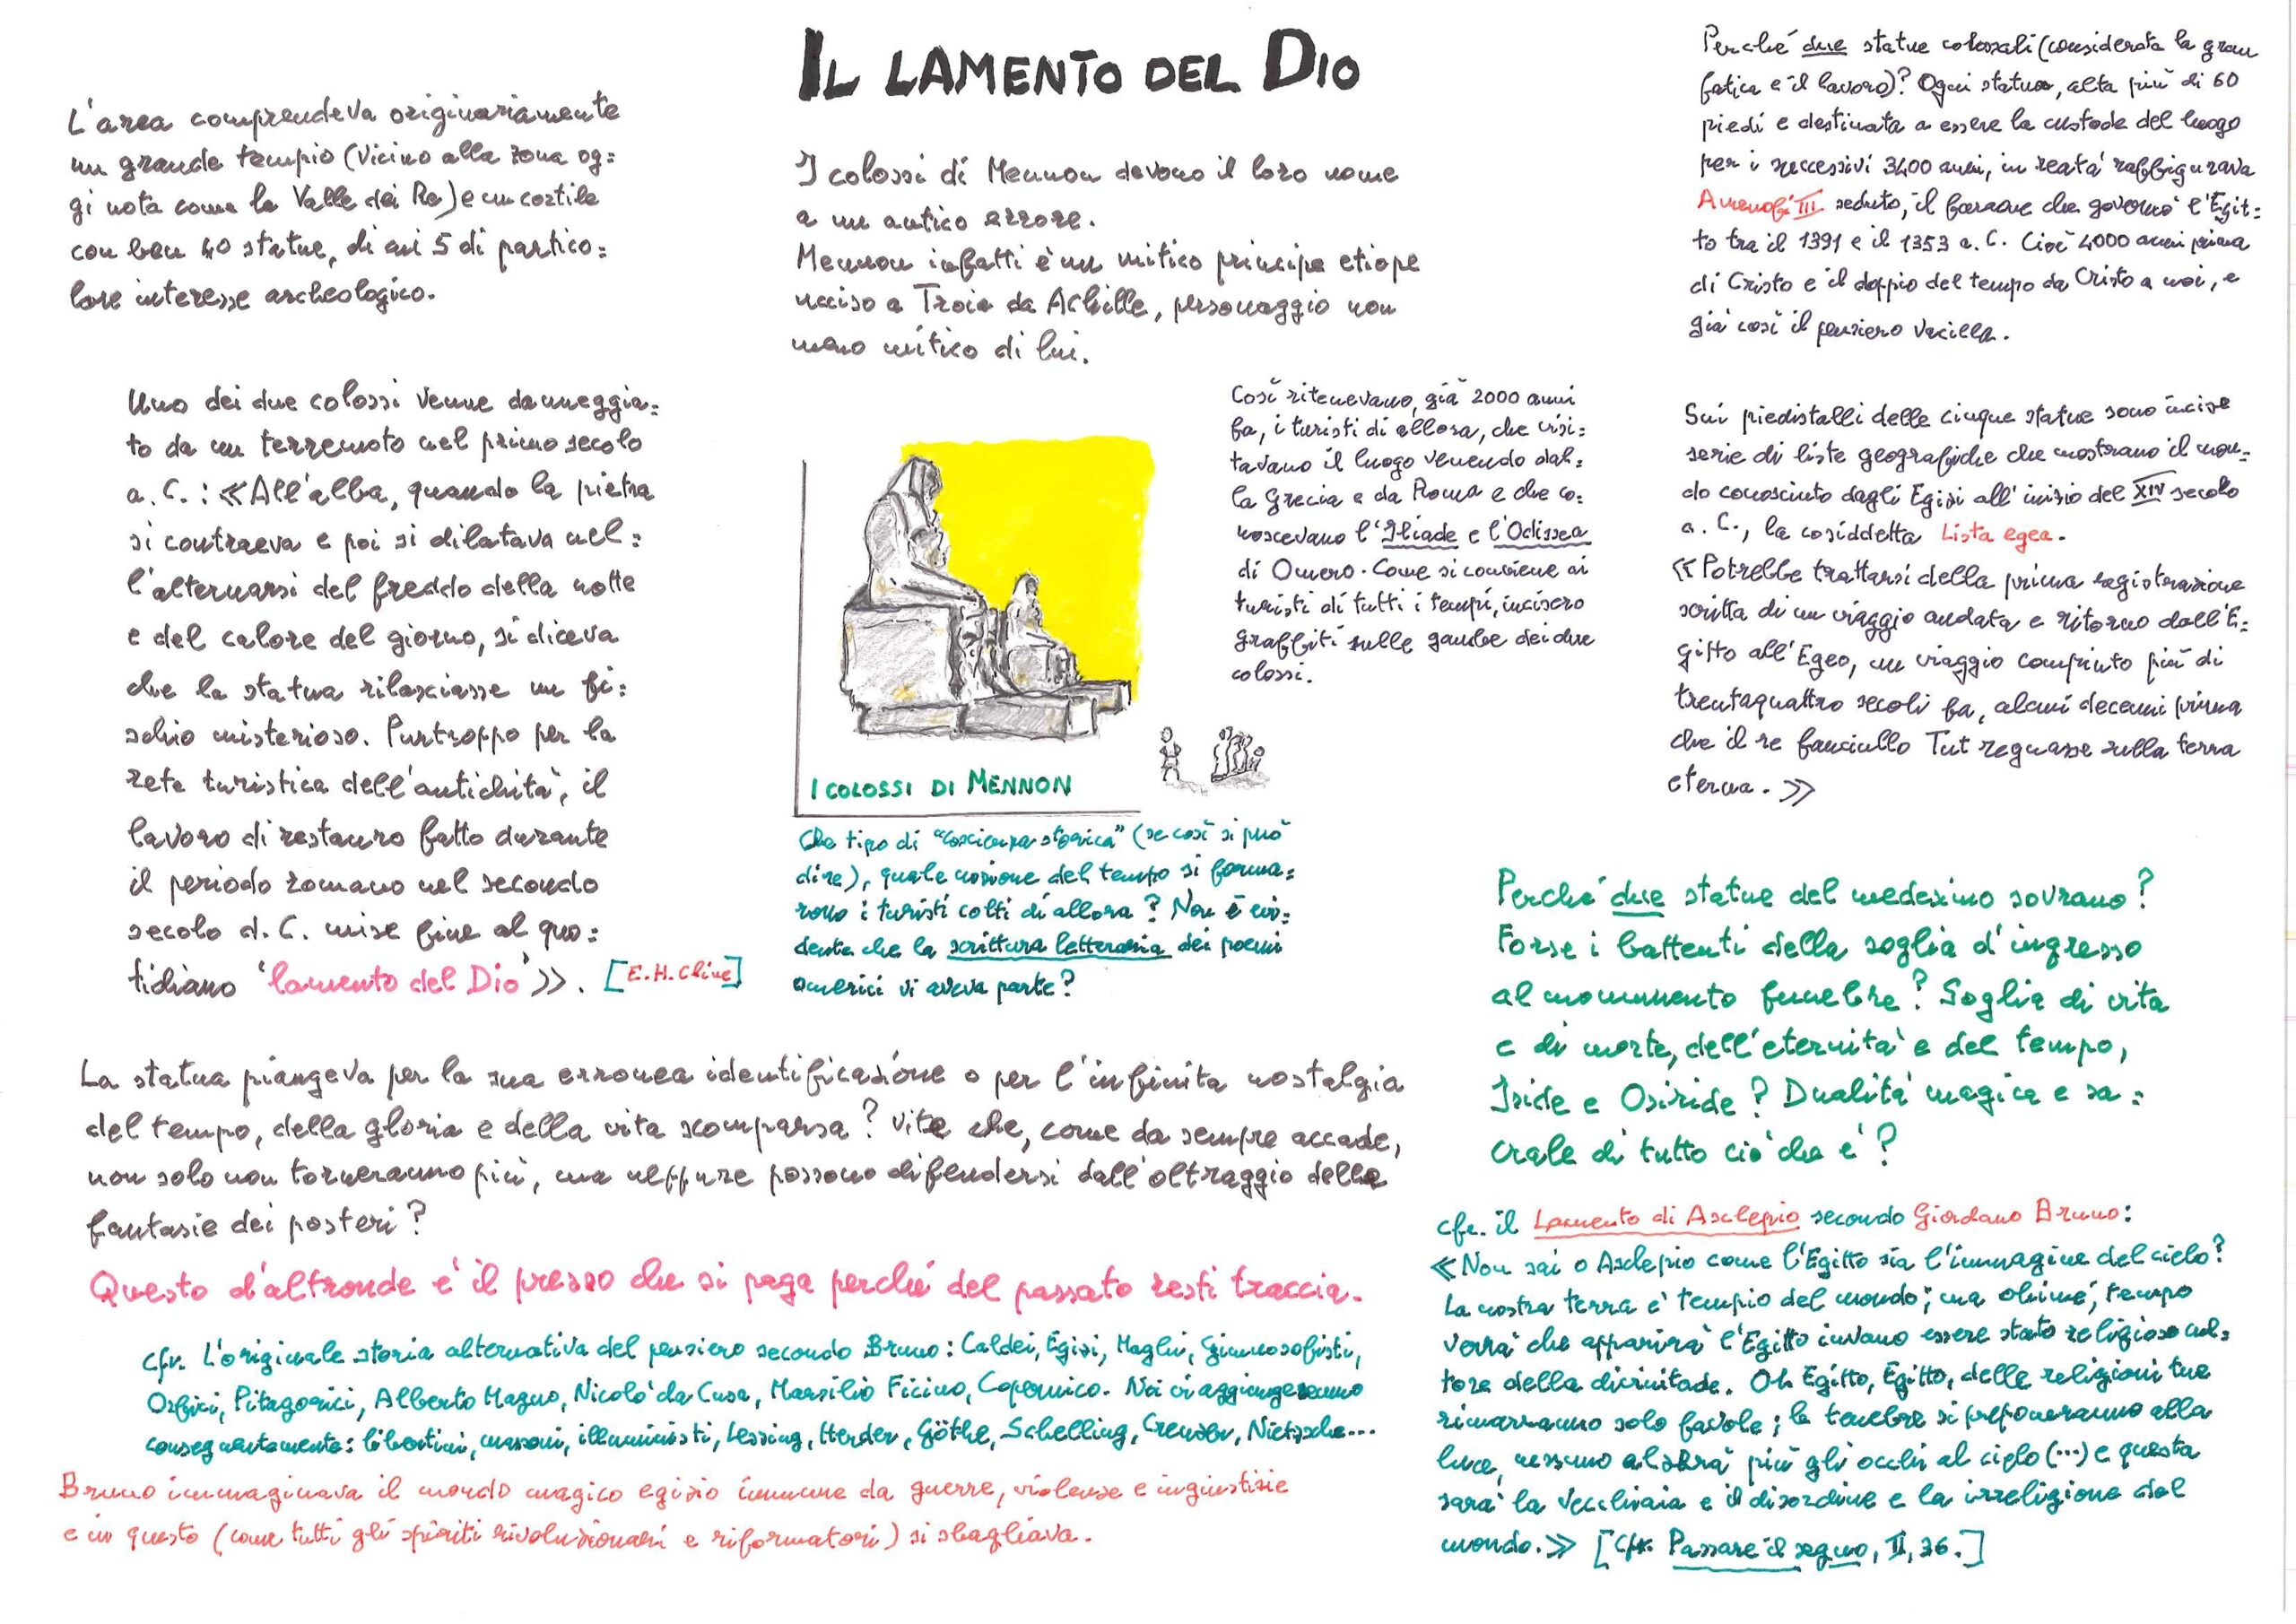 IL LAMENTO DEL DIO
L'area comprendeva originariamente
un grande tempio (vicino alla zona og=
gi nota come la Valle dei Re) e un cortile
con ben 40 statue, di cui 5 di partico=
lare interesse archeologico.
Uno dei due colossi venne danneggia=
to da un terremoto nel primo secolo
a. C. : «All'alba, quando la pietra
si contraeva e poi si dilatava nel=
l'alternarsi del freddo della notte
e del calore del giorno, si diceva
che la statua rilasciasse un fi=
schio misterioso. Purtroppo per la
rete turistica dell'antichità, il
lavoro di restauro fatto durante
il periodo romano nel secondo
secolo d. C. mise fine al quo=
tidiano 'lamento del Dio'». [E.H. Cline]
I colossi di Mennon devono il loro nome
a un antico errore.
Mennon infatti è un mitico principe etiope
ucciso a Troia da Achille, personaggio non
meno mitico di lui.
Così ritenevano, già 2000 anni
fa, i turisti di allora, che visi=
tavano il luogo venendo dal=
la Grecia e da Roma e che co=
noscevano l'Iliade e l'Odissea
di Omero. Come si conviene ai
turisti di tutti i tempi, incisero
graffiti sulle gambe dei due
colossi.
I COLOSSI DI MENNON
Che tipo di "coscienza storica" (se così si può
dire), quale nozione del tempo si forma=
rono i turisti colti di allora? Non è evi=
dente che la scrittura letteraria dei poemi
omerici vi aveva parte?
Perché due statue colossali (considerata la gran
fatica e il lavoro)? Ogni statua, alta più di 60
piedi e destinata a essere la custode del luogo
per i successivi 3400 anni, in realtà raffigurava
Amenofi III seduto, il faraone che governò l'Egit=
to tra il 1391 e il 1353 a. C. Cioè 4000 anni prima
di Cristo e il doppio del tempo da Cristo a noi, e
già così il pensiero vacilla.
Sui piedistalli delle cinque statue sono incise
serie di liste geografiche che mostrano il mon=
do conosciuto dagli Egizi all'inizio del XIV secolo
a. C., la cosiddetta Lista egea.
«Potrebbe trattarsi della prima registrazione
scritta di un viaggio andata e ritorno dall'E=
gitto all'Egeo, un viaggio compiuto più di
trentaquattro secoli fa, alcuni decenni prima
che il re fanciullo Tut regnasse sulla terra
eterna. »
Perché due statue del medesimo sovrano?
Forse i battenti della soglia d'ingresso
al monumento funebre? Soglia di vita
e di morte, dell'eternità e del tempo,
Iside e Osiride? Dualità magica e sa=
crale di tutto ciò che è?
La statua piangeva per la sua erronea identificazione o per l'infinita nostalgia
del tempo, della gloria e della vita scomparsa? Vite che, come da sempre accade,
non solo non torneranno più, ma neppure possono difendersi dall'oltraggio delle
fantasie dei posteri?
Questo d'altronde è il prezzo che si paga perché del passato resti traccia.
cfr. L'originale storia alternativa del pensiero secondo Bruno: Caldei, Egizi, Maghi, Gimnosofisti,
Orfici, Pitagorici, Alberto Magno, Nicolò da Cusa, Marsilio Ficino, Copernico. Noi vi aggiungeremmo
conseguentemente: libertini, massoni, illuministi, Lessing, Herder, Göthe, Schelling, Creuzer, Nietzsche...
Bruno immaginava il mondo magico egizio immune da guerre, violenze e ingiustizie
e in questo (come tutti gli spiriti rivoluzionari e riformatori) si sbagliava.
cfr. il Lamento di Asclepio secondo Giordano Bruno:
«Non sai o Asclepio come l'Egitto sia l'immagine del cielo?
La nostra terra è tempio del mondo; ma ohimé, tempo
verrà che apparirà l'Egitto invano essere stato religioso cul=
tore della divinitade. Oh Egitto, Egitto, delle religioni tue
rimarranno solo favole; le tenebre si preponeranno alla
luce, nessuno alzerà più gli occhi al cielo (...) e questa
sarà la vecchiaia e il disordine e la irreligione del
mondo.» [Cfr. Passare il segno, II, 36.]